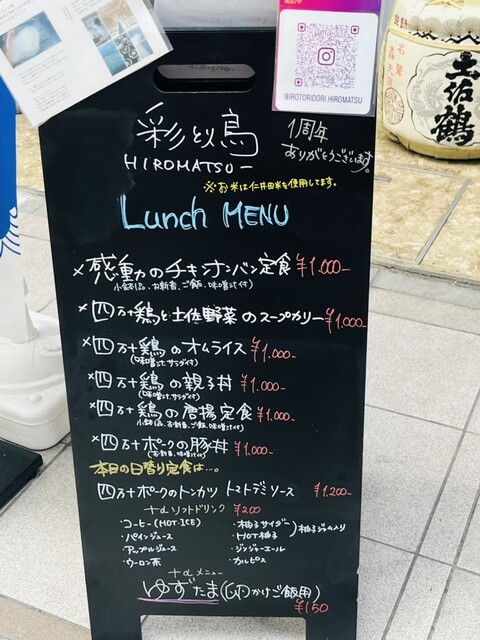 @IROTORIDORI.HIROMATSU
土佐鶴
彩とり鳥
HIROMATSUー
1周年
ありがとうございます。
※お米は仁井田米を使用してます。
Lunch MENU
×感動のチキンナンバン定食 ¥1.000-
小鉢1品、お新香、ご飯、味噌汁付)
×四万十鶏と土佐野菜のスープカリー ¥1.000-
×四万十鶏のオムライス ¥1.000-
(味噌汁、サラダ付)
×四万十鶏の親子丼 ¥1.000-
(味噌汁、サラダ付)
×四万十鶏の唐揚定食 ¥1.000-
小鉢1品、お新香、ご飯、味噌汁付)
×四万十ポークの豚丼 ¥1.000-
(お新香、味噌汁付)
本日の日替り定食は…。
四万十ポークのトンカツ トマトデミソース ¥1.200-
+αソフトドリンク ¥200
・コーヒー(HOT・ICE)
・パインジュース
・アップルジュース
・ウーロン茶
・柚子サイダー
・HOT柚子
)柚子ジャム入り
・ジンジャーエール
・カルピス
+αメニュー
ゆずたま(卵かけご飯用)
¥150